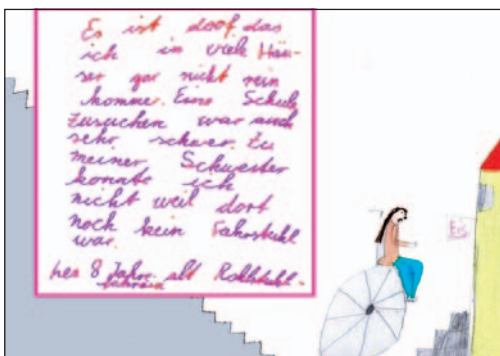 Es ist doof, das
ich in viele Häu-
ser gar nicht rein
komme. Eine Schule
zusuchen war auch
sehr schwer. Zu
meiner Schwester
konnte ich
nicht weil dort
noch kein Fahrstuhl
war.
8 Jahre alt Rollstuhl-
fahrerin